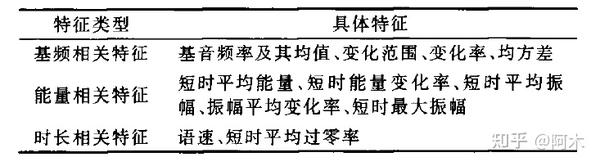 特征类型 具体特征
基频相关特征 基音频率及其均值、变化范围、变化率、均方差
能量相关特征 短时平均能量、短时能量变化率、短时平均振
幅、振幅平均变化率、短时最大振幅
时长相关特征 语速、短时平均过零率
知乎 @阿木